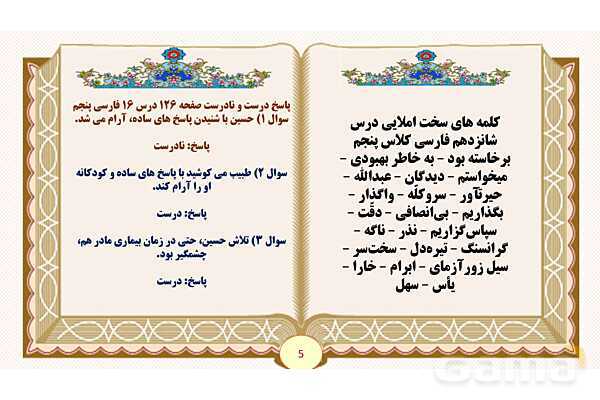 کلمه های سخت املایی درس
شانزدهم فارسی کلاس پنجم
برخاسته بود – به خاطر بهبودی –
میخواستم – دیدگان – عبدالله –
حیرت‌آور – سروکلّه – واگذار –
بگذاریم – بی‌انصافی – دقّت –
سپاس‌گزاریم – نذر – ناگه –
گرانسنگ – تیره‌دل – سخت‌سر –
سیل زورآزمای – ابرام – خارا –
یأس – سهل
پاسخ درست و نادرست صفحه ۱۲۶ درس ۱۶ فارسی پنجم
سوال ۱) حسین با شنیدن پاسخ های ساده، آرام می شد.
پاسخ: نادرست
سوال ۲) طبیب می کوشید با پاسخ های ساده و کودکانه
او را آرام کند.
پاسخ: درست
سوال ۳) تلاش حسین، حتی در زمان بیماری مادر هم،
چشمگیر بود.
پاسخ: درست
5
Gama